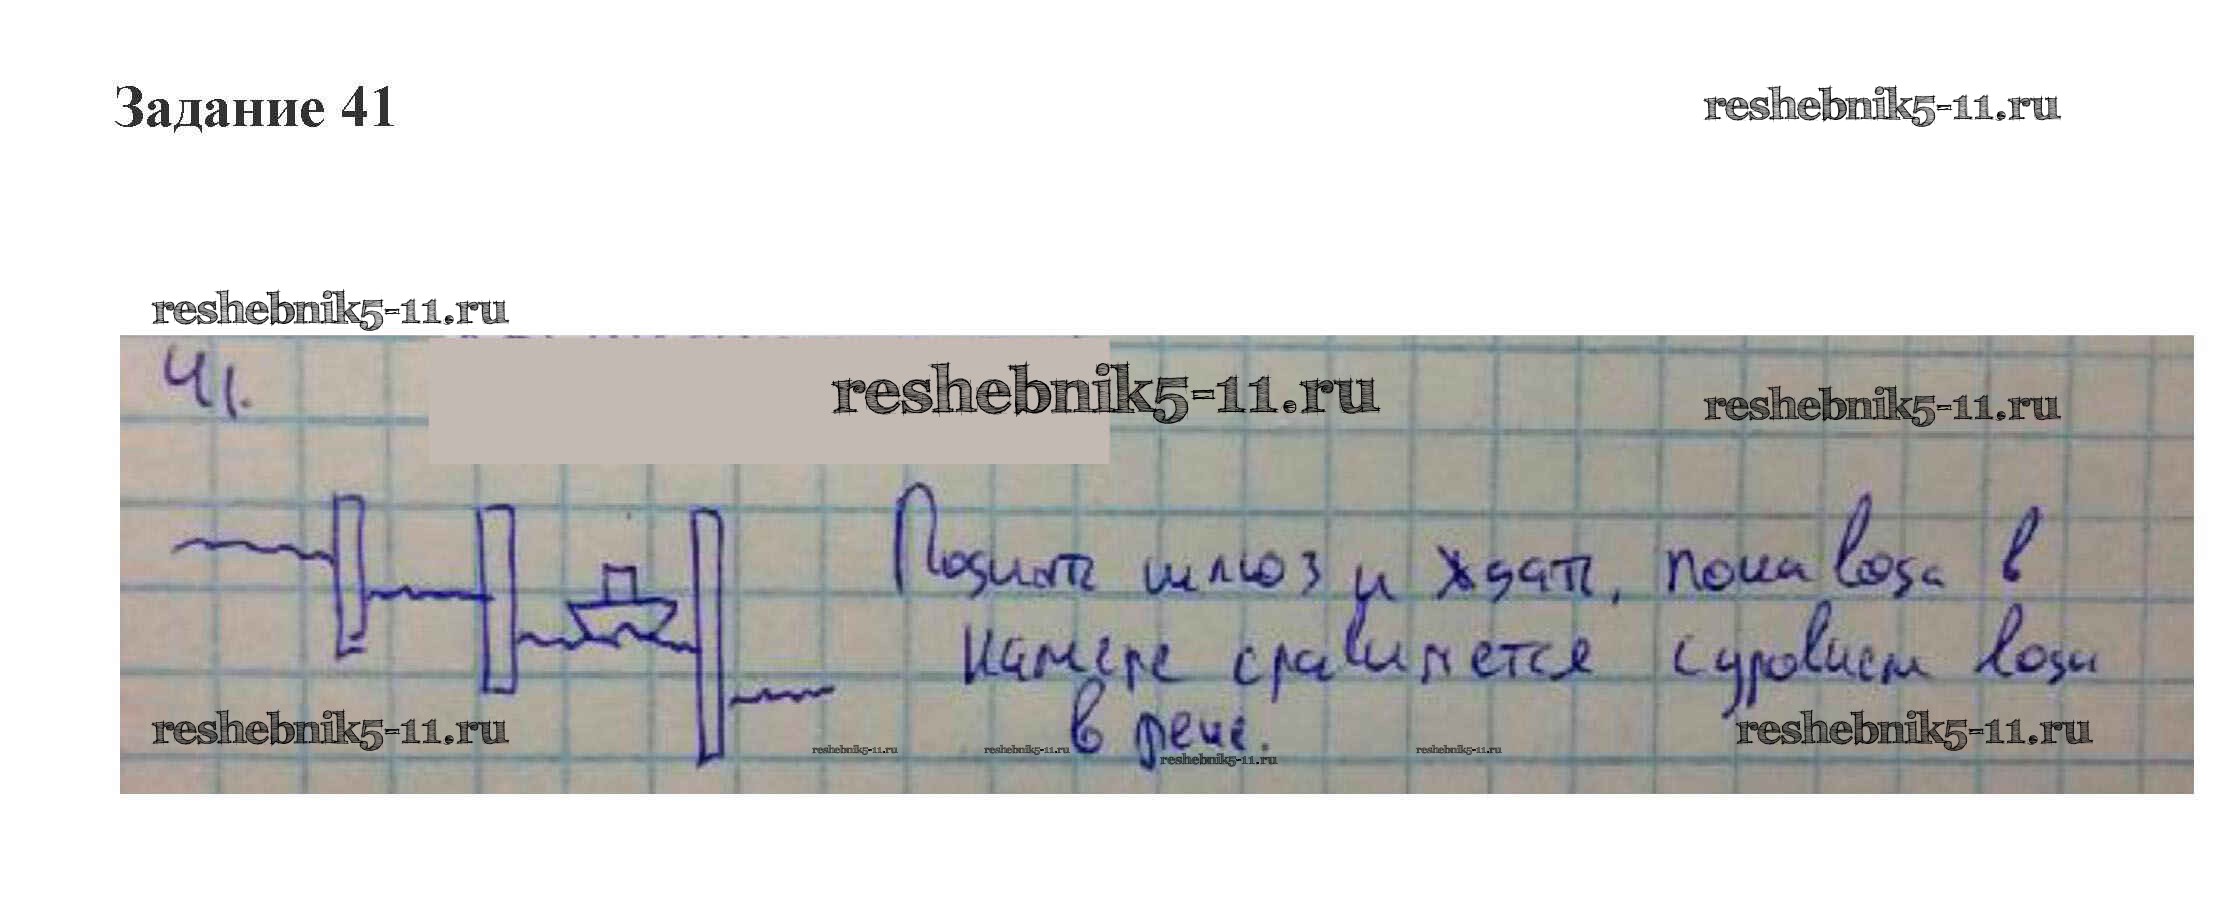 Задание 41
reshebnik5-11.ru
reshebnik5-11.ru
41.
reshebnik5-11.ru
reshebnik5-11.ru
шлюз и ждать, пока вода в
камере сравняется с уровнем воды
в реке.
reshebnik5-11.ru
reshebnik5-11.ru
reshebnik5-11.ru
reshebnik5-11.ru
reshebnik5-11.ru
reshebnik5-11.ru